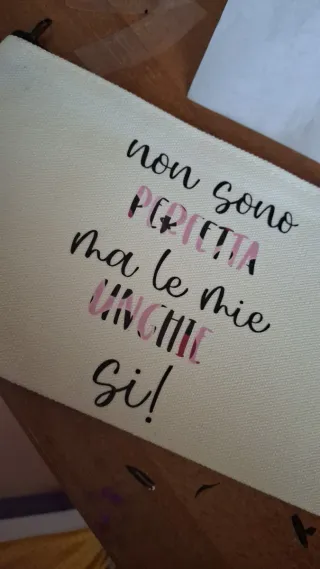 non sono
PERFETTA
ma le mie
UNGHIE
si!